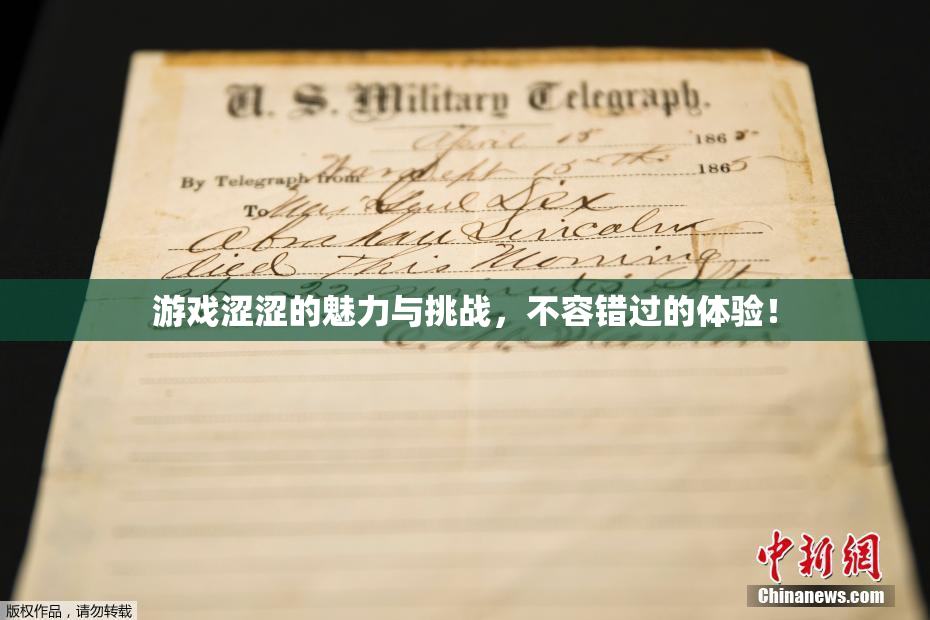 U. S. Military Telegraph.
April 15 1865
By Telegraph from War Dept 15th 1865
To Maj Genl Dix
Abraham Lincoln
died This Morning
at 22 minutes after
游戏涩涩的魅力与挑战，不容错过的体验！
中新網
Chinanews.com
版权作品，请勿转载